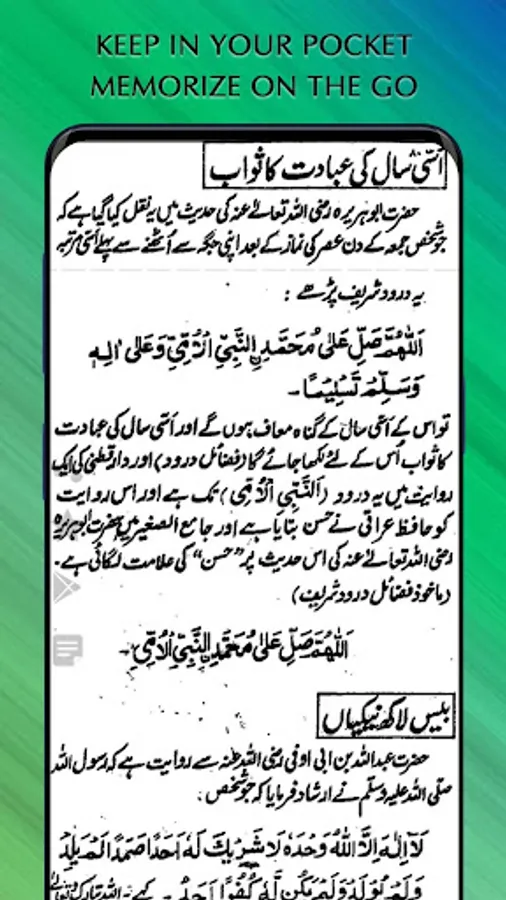 KEEP IN YOUR POCKET
MEMORIZE ON THE GO
اَسّی سال کی عبادت کا ثواب
حضرت ابو ہریرہ رضی اللہ تعالےٰ عنہ کی حدیث میں یہ نقل کیا گیا ہے کہ
جو شخص جمعہ کے دن عصر کی نماز کے بعد اپنی جگہ سے اُٹھنے سے پہلے اَسّی مرتبہ
یہ درود شریف پڑھے :
اَللّٰهُمَّ صَلِّ عَلٰى مُحَمَّدِ ِۨالنَّبِيِّ الْاُمِّيِّ وَعَلٰى اٰلِهٖ
وَسَلِّمْ تَسْلِيْمًا ۔
تو اس کے اَسّی سال کے گناہ معاف ہوں گے اور اَسّی سال کی عبادت
کا ثواب اُس کے لئے لکھا جائے گا (فضائل درود) اور دار قطنی کی ایک
روایت میں یہ درود (اَلنَّبِيِّ الْاُمِّيِّ) تک ہے اور اس روایت
کو حافظ عراقی نے حسن بتایا ہے اور جامع الصغیر میں حضرت ابو ہریرہ
رضی اللہ تعالےٰ عنہ کی اس حدیث پر "حسن" کی علامت لگائی ہے۔
(ماخوذ فضائل درود شریف)
اَللّٰهُمَّ صَلِّ عَلٰى مُحَمَّدِ ِۨالنَّبِيِّ الْاُمِّيِّ ۔
بیس لاکھ نیکیاں
حضرت عبداللہ بن ابی اوفی رضی اللہ عنہ سے روایت ہے کہ رسول اللہ
صلی اللہ علیہ وسلم نے ارشاد فرمایا کہ جو شخص :
لَآ اِلٰهَ اِلَّا اللّٰهُ وَحْدَهٗ لَا شَرِيْكَ لَهٗ اَحَدًا صَمَدًا لَمْ يَلِدْ
وَلَمْ يُوْلَدْ وَلَمْ يَكُنْ لَّهٗ كُفُوًا اَحَدٌ ۔ کہے۔ اللہ تبارک وتعالےٰ